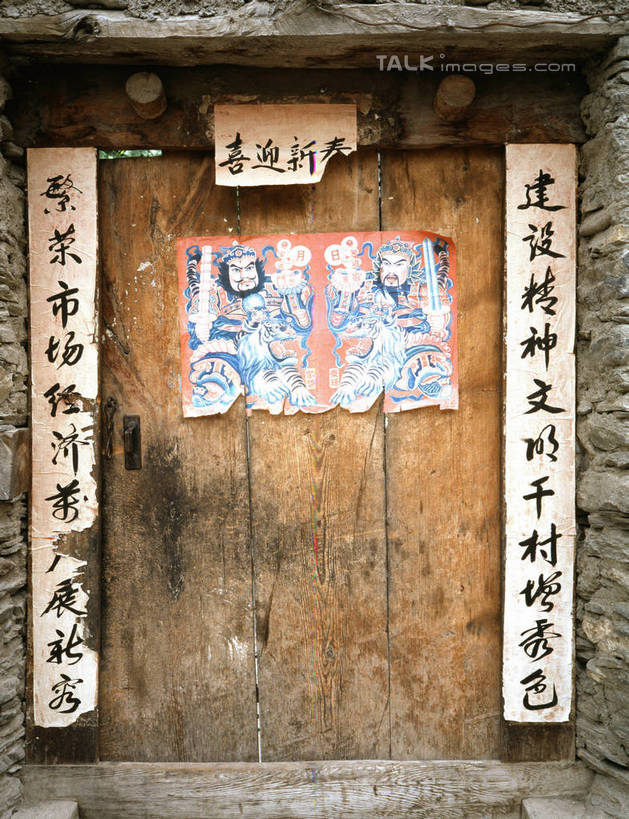 TALKimages.com
喜迎新春
建设精神文明千村增秀色
繁荣市场经济萬展新容
月
日